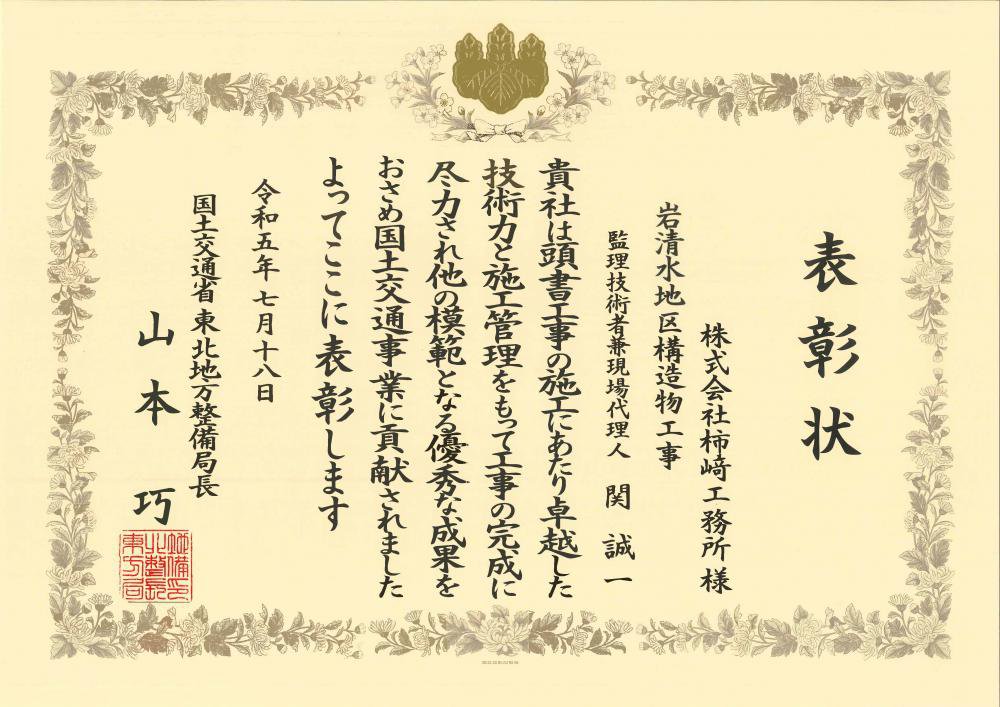 表彰状
株式会社柿﨑工務所様
岩清水地区構造物工事
監理技術者兼現場代理人 関 誠一
貴社は頭書工事の施工にあたり卓越した
技術力と施工管理をもって工事の完成に
尽力され他の模範となる優秀な成果を
おさめ国土交通事業に貢献されました
よってここに表彰します
令和五年七月十八日
国土交通省東北地方整備局長
山本 巧